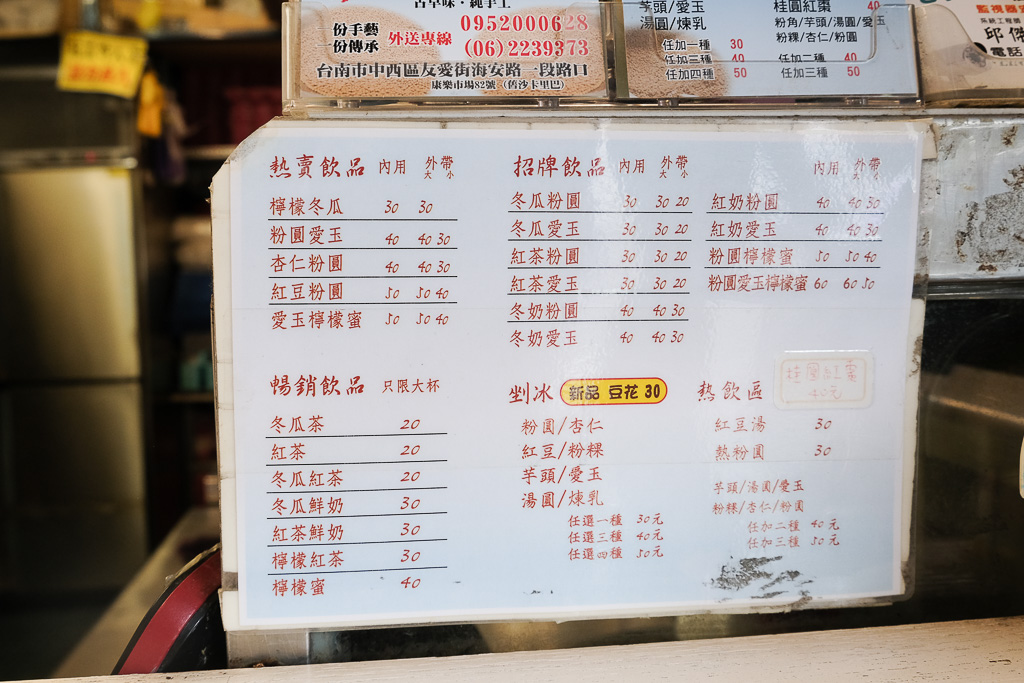 古早味·純手工
份手藝
份傳承
外送專線
0952000628
(06)2239373
台南市中西區友愛街海安路一段路口
康樂市場82號(舊沙卡里巴)
芋頭/愛玉
湯圓/煉乳
任加一種 30
任加三種 40
任加四種 50
桂圓紅棗 40
粉角/芋頭/湯圓/愛玉
粉粿/杏仁/粉圓
任加二種 40
任加三種 50
監視器
吳統工程師
邱傑
電話
熱賣飲品 內用 外帶
大 小
檸檬冬瓜 30 30
粉圓愛玉 40 40 30
杏仁粉圓 40 40 30
紅豆粉圓 50 50 40
愛玉檸檬蜜 50 50 40
招牌飲品 內用 外帶
大 小
冬瓜粉圓 30 30 20
冬瓜愛玉 30 30 20
紅茶粉圓 30 30 20
紅茶愛玉 30 30 20
冬奶粉圓 40 40 30
冬奶愛玉 40 40 30
內用 外帶
大 小
紅奶粉圓 40 40 30
紅奶愛玉 40 40 30
粉圓檸檬蜜 50 50 40
粉圓愛玉檸檬蜜 60 60 50
暢銷飲品 只限大杯
冬瓜茶 20
紅茶 20
冬瓜紅茶 20
冬瓜鮮奶 30
紅茶鮮奶 30
檸檬紅茶 30
檸檬蜜 40
剉冰 新品 豆花 30
粉圓/杏仁
紅豆/粉粿
芋頭/愛玉
湯圓/煉乳
任選一種 30元
任選三種 40元
任選四種 50元
熱飲區
桂圓紅棗
40元
紅豆湯 30
熱粉圓 30
芋頭/湯圓/愛玉
粉粿/杏仁/粉圓
任加二種 40元
任加三種 50元